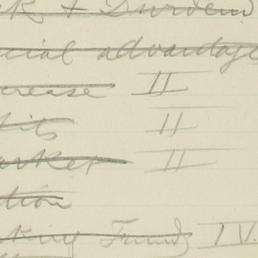 & Burden
cial advantage
crease II
fits II
arket II
tion
king Fund IV.